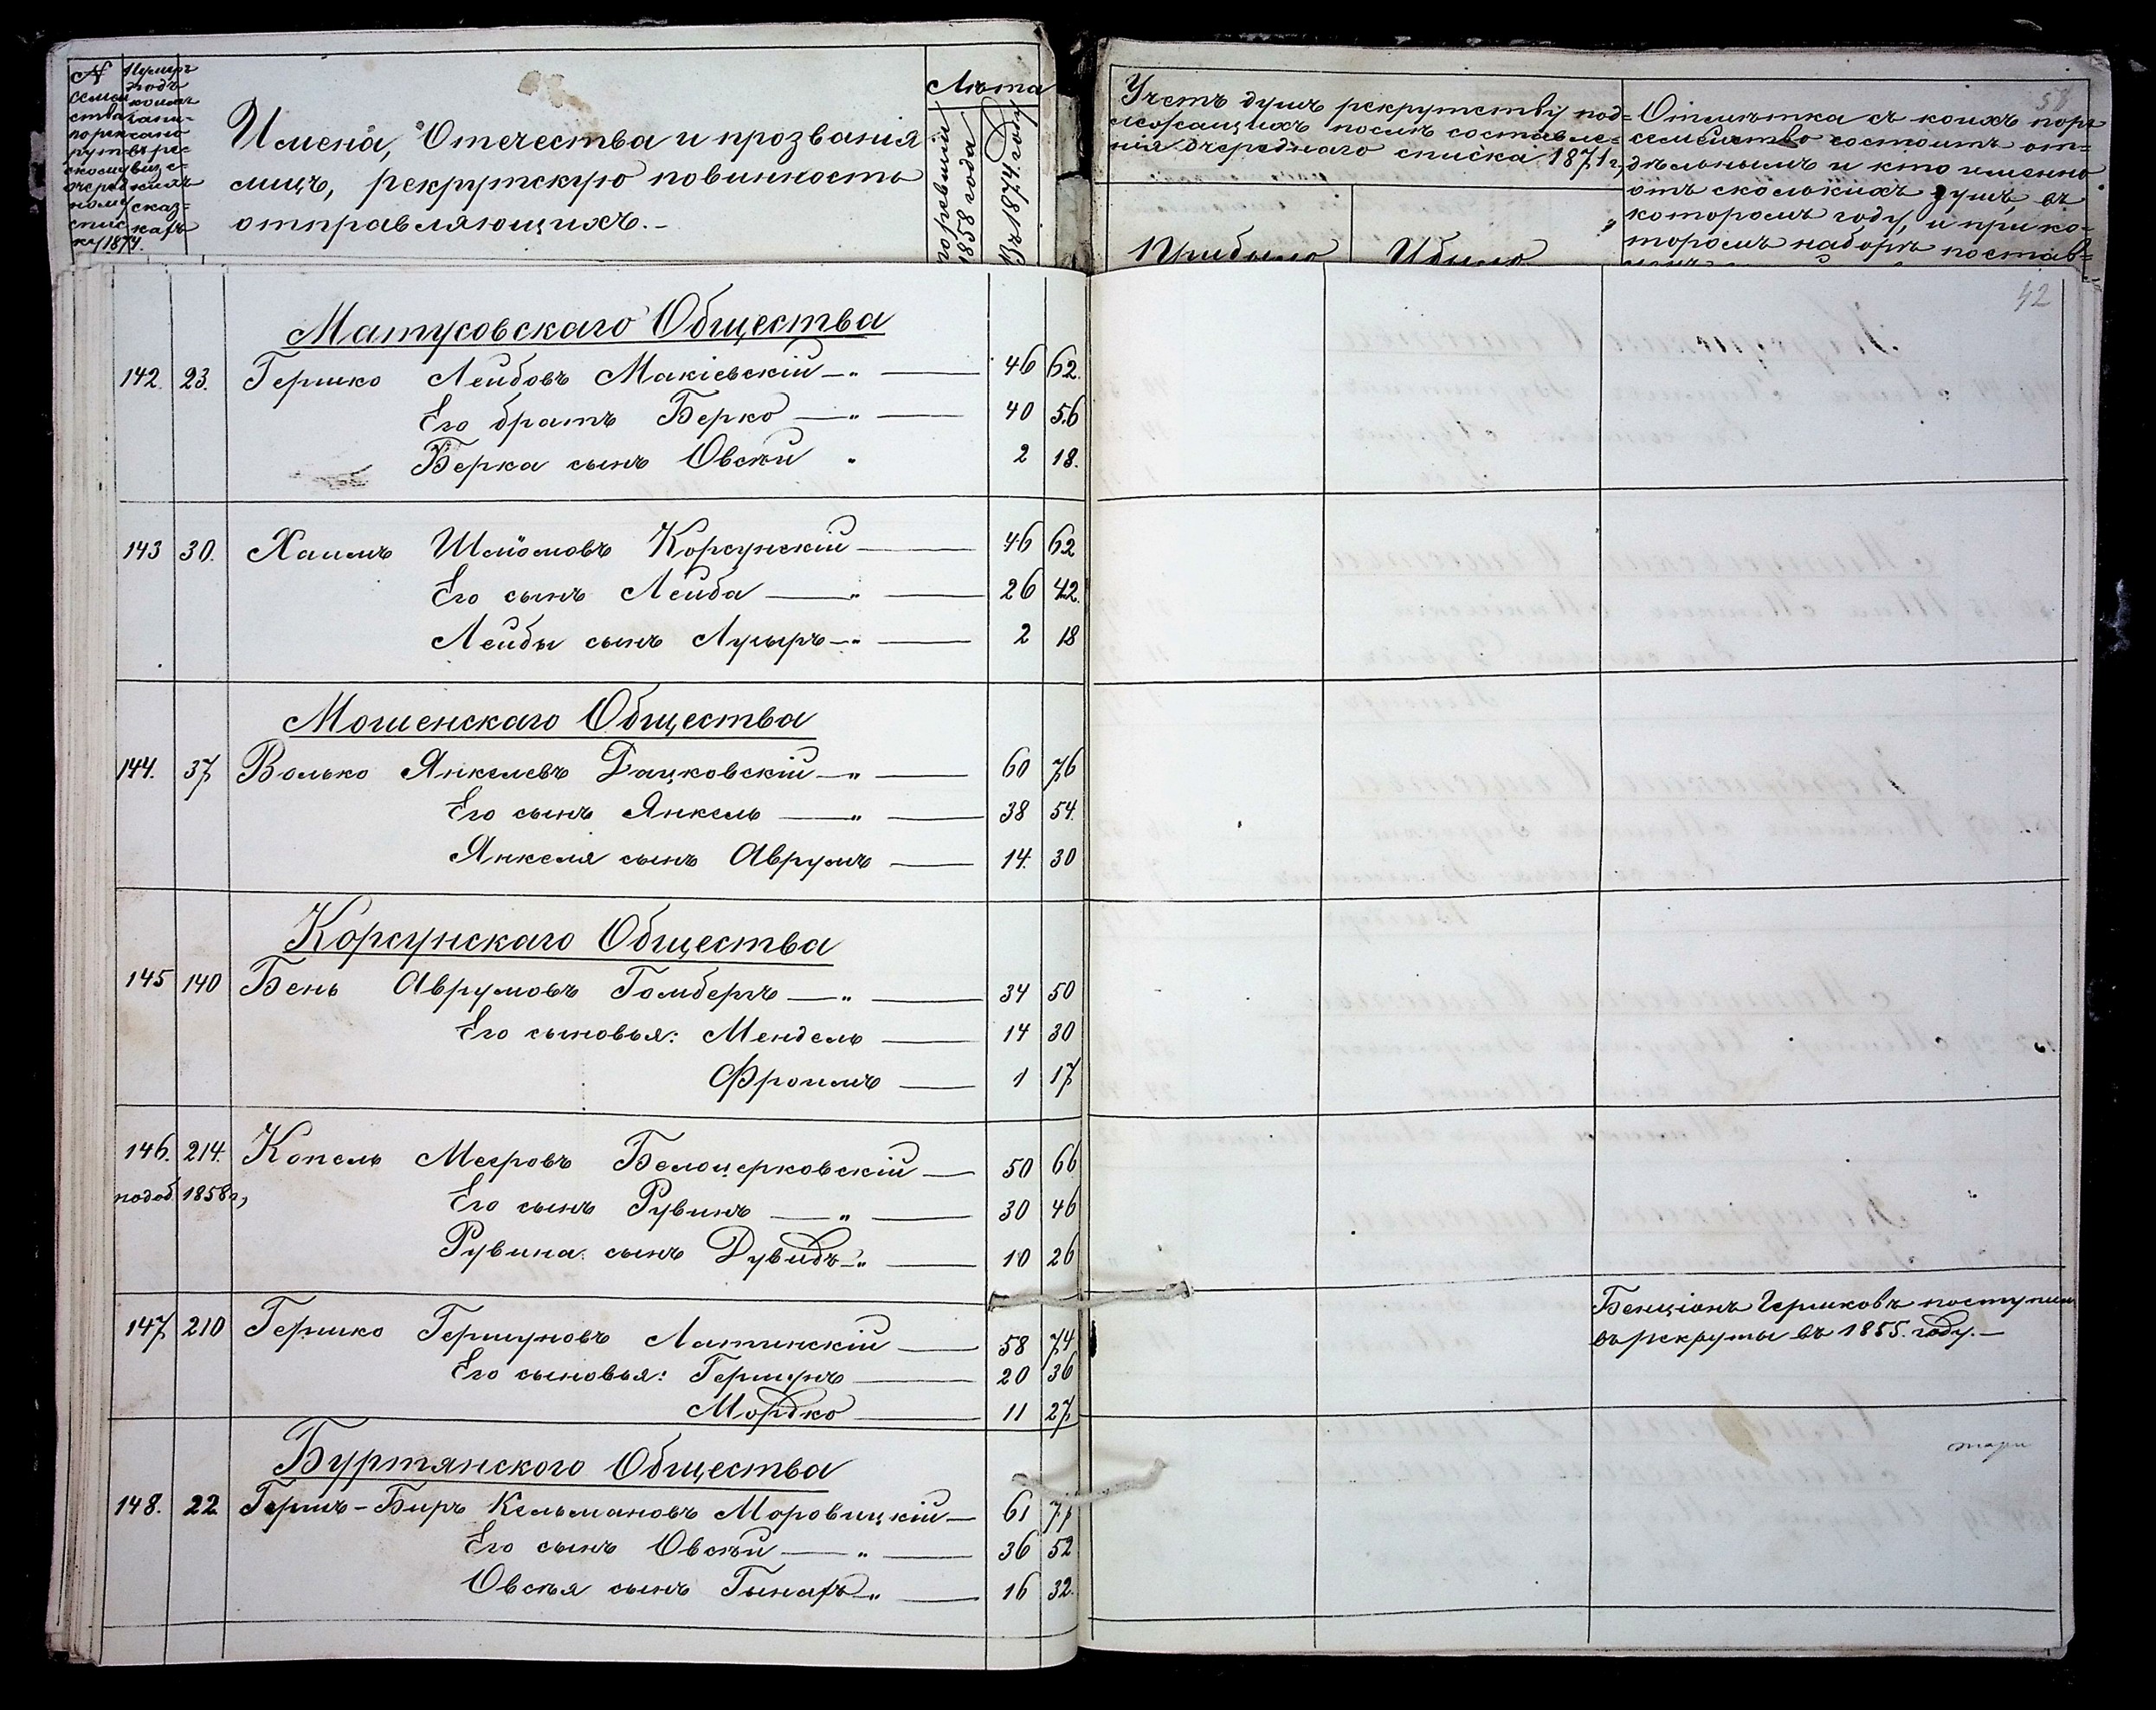 № семейства по рекрутскому очередному списку 1874.
Нумеръ подъ коимъ записано въ ревизскихъ сказкахъ
Имена, Отечества и прозванія
лицъ, рекрутскую повинность
отправляющихъ.-
Лѣта
по ревизіи 1858 года
Въ 1874 году
Учетъ душъ рекрутству под=
лежащихъ послѣ составле=
нія очереднаго списка 1871 г,
Прибыло
Убыло
58
Отмѣтка съ коихъ поръ
семейство состоитъ от=
дѣльнымъ и кто именно
отъ сколькихъ душъ, въ
которомъ году, и при ко=
торомъ наборѣ постав=
42
Матусовскаго Общества
142. 23. Гершко Лейбовъ Макіевскій -„- 46 62.
Его братъ Берко -„- 40 56
Берка сынъ Овсѣй „ 2 18.
143 30. Хаимъ Шліомовъ Корсунскій - 46 62
Его сынъ Лейба -„- 42.
Лейбы сынъ Лузыръ -„- 2 18
Мошенскаго Общества
144. 37 Волько Янкелевъ Дацковскій -„- 60 76
Его сынъ Янкель -„- 38 54.
Янкеля сынъ Аврумъ - 14. 30
Корсунскаго Общества
145 140 Бень Аврумовъ Голибергъ -„- 34 50
Его сыновья: Мендель - 14 30
Фроимъ - 1 17
146. 214. Копель Мееровъ Белоцерковскій - 50 66
подоб. 1858 г, Его сынъ Рувинъ -„- 30 46
Рувина сынъ Дувидъ -„- 10 26
147 210 Гершко Гершуновъ Латинскій - 58 74
Его сыновья: Гершунъ - 20 36
Мордко - 11 27
Бенціонъ Гершковъ поступилъ
въ рекруты въ 1855. году.-
Буртянского Общества
148. 22 Гершъ-Биръ Кельмановъ Моровицкій - 61 77
Его сынъ Овсѣй -„- 36 52
Овсѣя сынъ -„- 16 32.